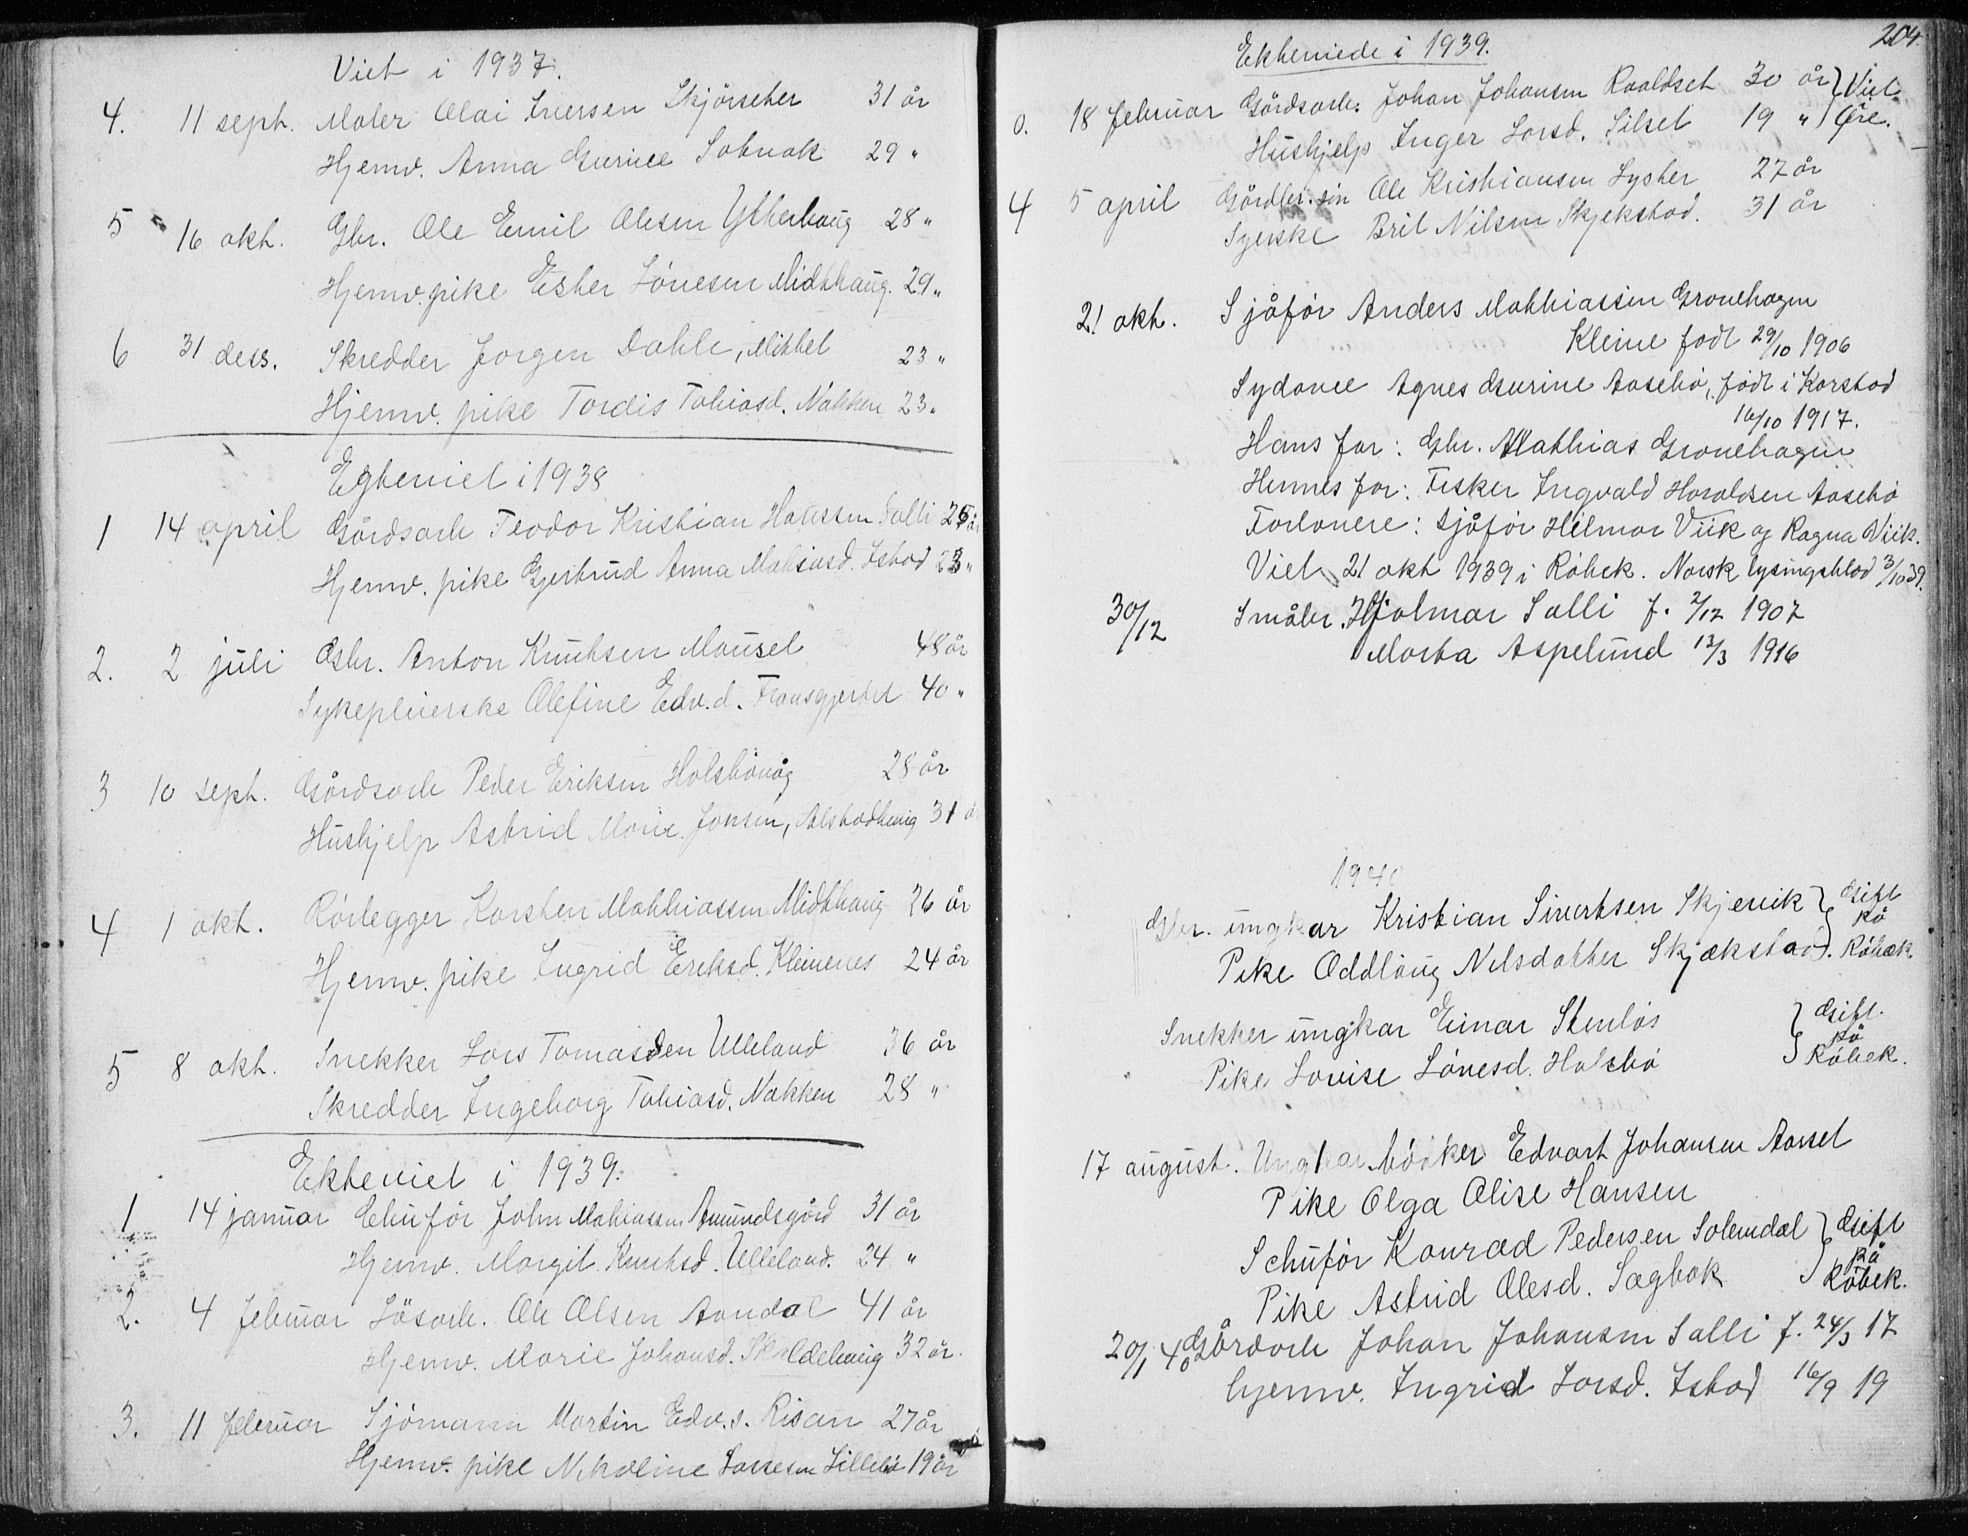 Viet i 1937.
4. 11 sept. Maler Olai Iversen Skjörseter 31 år
Hjemv. Anna Gurine 29 "
5 16 okt. Gbr. Ole Emil Olesen Ytterhaug 28 "
Hjemv. pike Ester Lönesen Midthaug. 29 "
6 31 des. Skredder Jorgen Dahle, Mittet 23 "
Hjemv. pike Tordis Tobiasd. Nakken 23 "
Egteviet i 1938
1 14 april Gårdsarb Teodor Kristian Hanssen Salli år
Hjemv. pike Gjertrud Anna Matiasd. Istad 23 "
2. 2 juli Gbr. Anton Knutsen Mauset 48 år
Sykepleierske Olefine Edv.d. 40 "
3 10 sept. Gårdsarb Peder Eriksen Holsbövåg 28 år
Hushjelp Astrid Marie Jonsen, 31 år
4 1 okt. Rörlegger Karsten Matthiassen Midthaug 26 år
Hjemv. pike Ingrid Eriksd. Kleivenes 24 år
5 8 okt. Snekker Lars Tomassen Ulleland 36 år
Skredder Ingeborg Tobiasd. Nakken 28 "
Ekteviet i 1939.
1 14 januar Chuför John Mathiassen Amundsgård 31 år
Hjemv. Margit Knutsd. Ulleland. 24 "
2. 4 februar Lösarb. Ole Olsen Aandal 41 år
Hjemv. Marie Johansd. Skaldehaug 32 år.
3. 11 februar Sjömann Martin Edv.s. Risan 27 år
Hjemv. pike Nikoline Larsesen Lillebö 19 år
204.
Ekteviede i 1939.
0. 18 februar Gårdsarb. Johan Johansen Raaldset 30 år } Viet
Hushjelp Inger Larsd. Silset 19 " } Øre.
4 5 april Gårdbr. sön Ole Kristiansen Lyster 27 år
Syerske Brit Nilsen Skjekstad. 31 år
21 okt. Sjåför Anders Matthiassen Gronehagen
Kleive fodt 29/10 1906
Sydame Agnes Gurine Aasebö, födt i Karstad
16/10 1917.
Hans far: Gbr. Matthias Gronehagen
Hennes far: Fisker Ingvald Haraldsen Aasebö
Forlovere: Sjåför Hilmar Viik og Ragna Viik.
Viet 21 okt 1939 i Röbek. Norsk lysingsblad 3/10 39.
30/12 Småbr. Hjalmar Salli f. 2/12 1907
Marta Aspelund 13/3 1916
1940
Gbr. ungkar Kristian Sivertsen Skjervik } Gift
på
Pike Oddlaug Nilsdatter Skjækstad. Röbæk
Snekker ungkar Einar Stenlös } Gift.
på
Pike Lovise Lönesd. Holsbö Röbek.
17 august. Ungkar Edvart Johansen Aarset
Pike Olga Alise Hansen
Schuför Konrad Pedersen Solemdal } Gift
på
Pike Astrid Olesd. Sagbak Röbek.
20/1 40 Gårdarb Johan Johansen Salli f. 24/3 17
hjemv. Ingrid Larsd. Istad 16/9 19